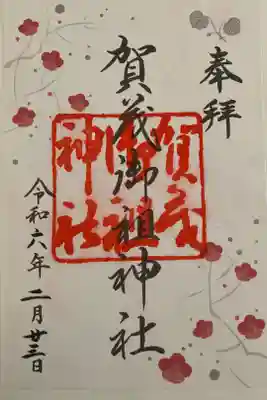 奉拝
賀茂御祖神社
賀茂
御祖
神社
令和六年 二月廿三日